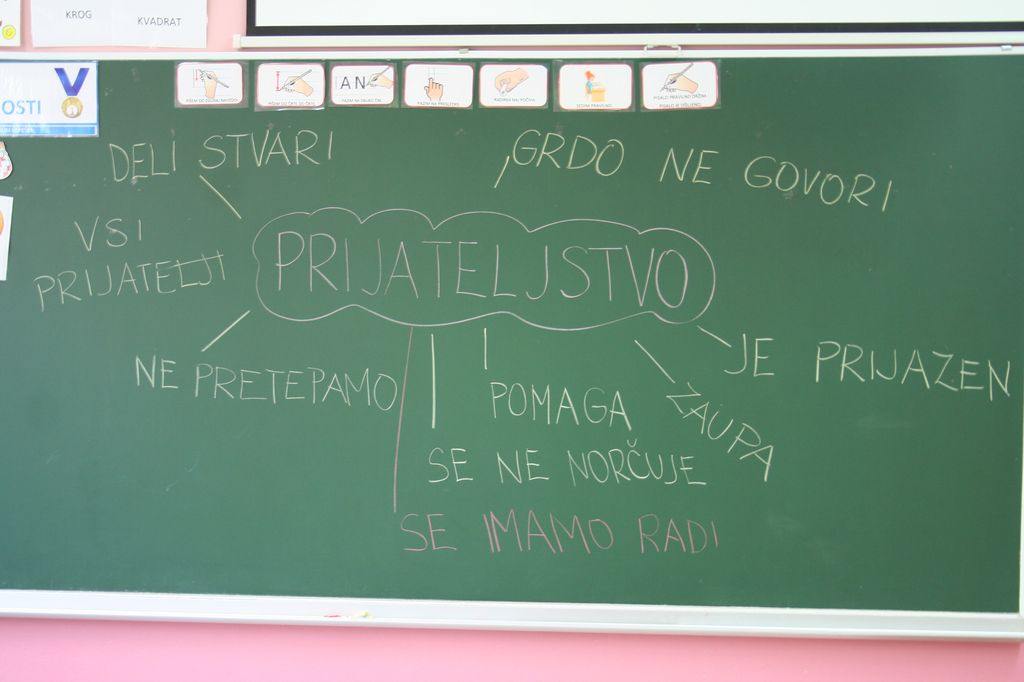 KROG
KVADRAT
OSTI
A N
DELI STVARI
GRDO NE GOVORI
VSI
PRIJATELJI
PRIJATELJSTVO
NE PRETEPAMO
JE PRIJAZEN
POMAGA
ZAUPA
SE NE NORČUJE
SE IMAMO RADI